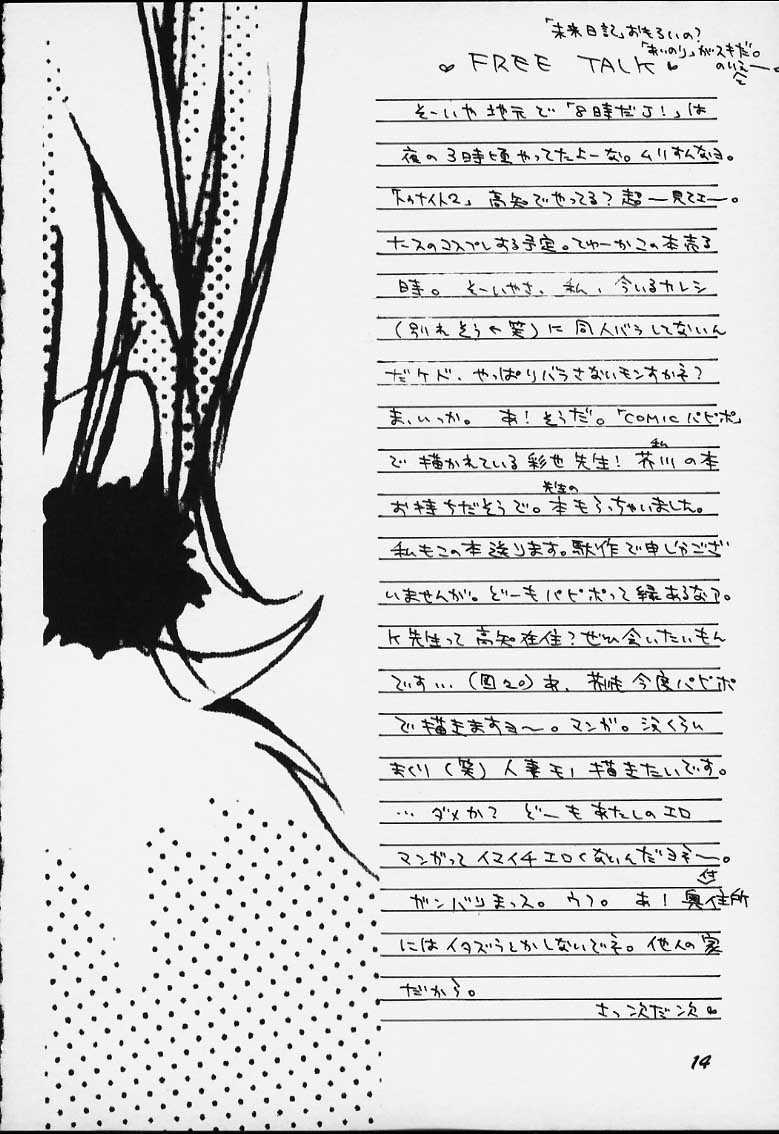 「未来日記」おもろいの?
「あいのり」がスキだ。
FREE TALK
そーいや地元で「8時だJ!」は
夜の3時頃やってたよーな。ムリすんなヨ。
「トゥナイト2」高知でやってる?超ー見てェー。
ナースのコスプレする予定。てゆーかこの本売る
時。そーいやさ、私、今いるカレシ
(別れそう←笑)に同人バラしてないん
だケド、やっぱりバラさないモンすかネ?
ま、いっか。あ!そうだ。「COMICパピポ」
で描かれている彩也先生!芥川の本
私
お持ちだそうで。本もらっちゃいました。
先生の
私もこの本送ります。駄作で申しわけござ
いませんが。どーもパピポって縁あるなァ。
K先生って高知在住?ぜひ会いたいもん
です…(図20)あ、芥川も今度パピポ
で描きますヨ〜。マンガ。涙くらい
まくり(笑)人妻モノ描きたいです。
…ダメか?どーもあたしのエロ
マンガってイマイチエロくないんだヨネー。
ガンバリまっス。ウフ。あ!奥付住所
にはイタズラとかしないでネ。他人の家
だから。
さっ次だ次
14